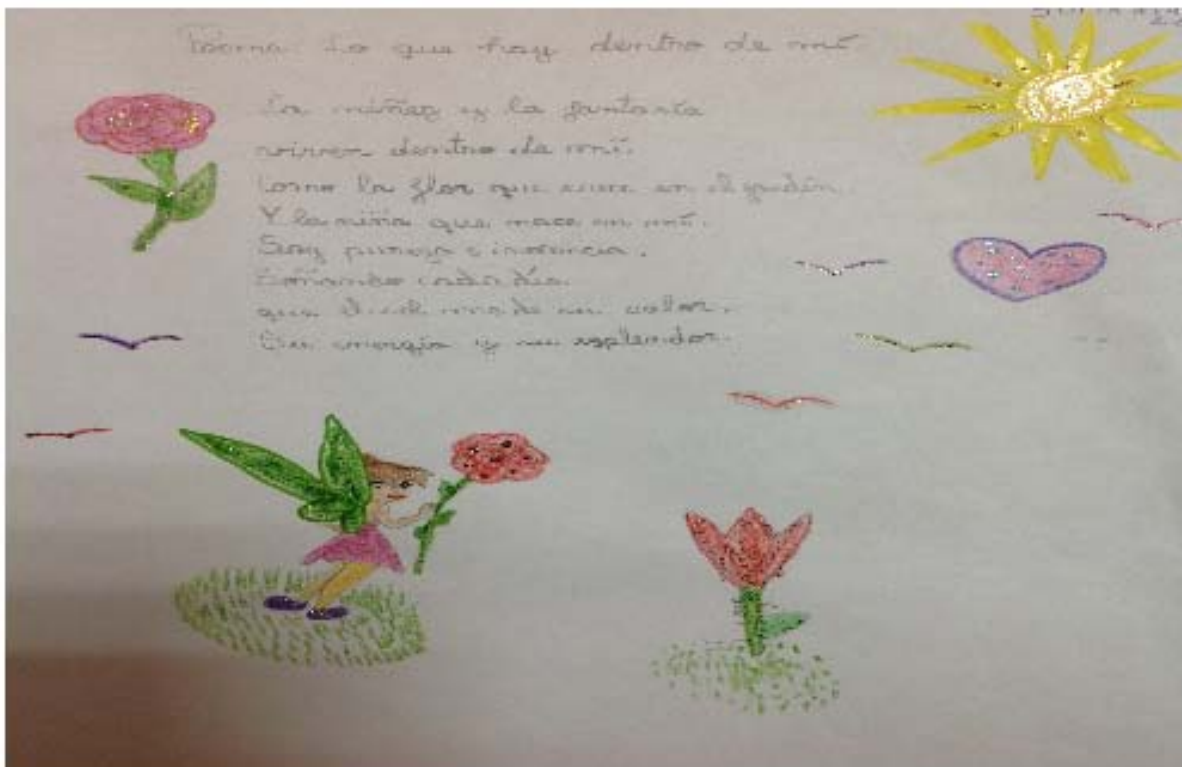 Poema: Lo que hay dentro de mí.
La niñez y la fantasía
viven dentro de mí.
Como la flor que nace en el jardín.
Y la niña que nace en mí.
Soy pureza e inocencia.
Soñando cada día.
que el sol me de su calor.
Su energía y su esplendor.